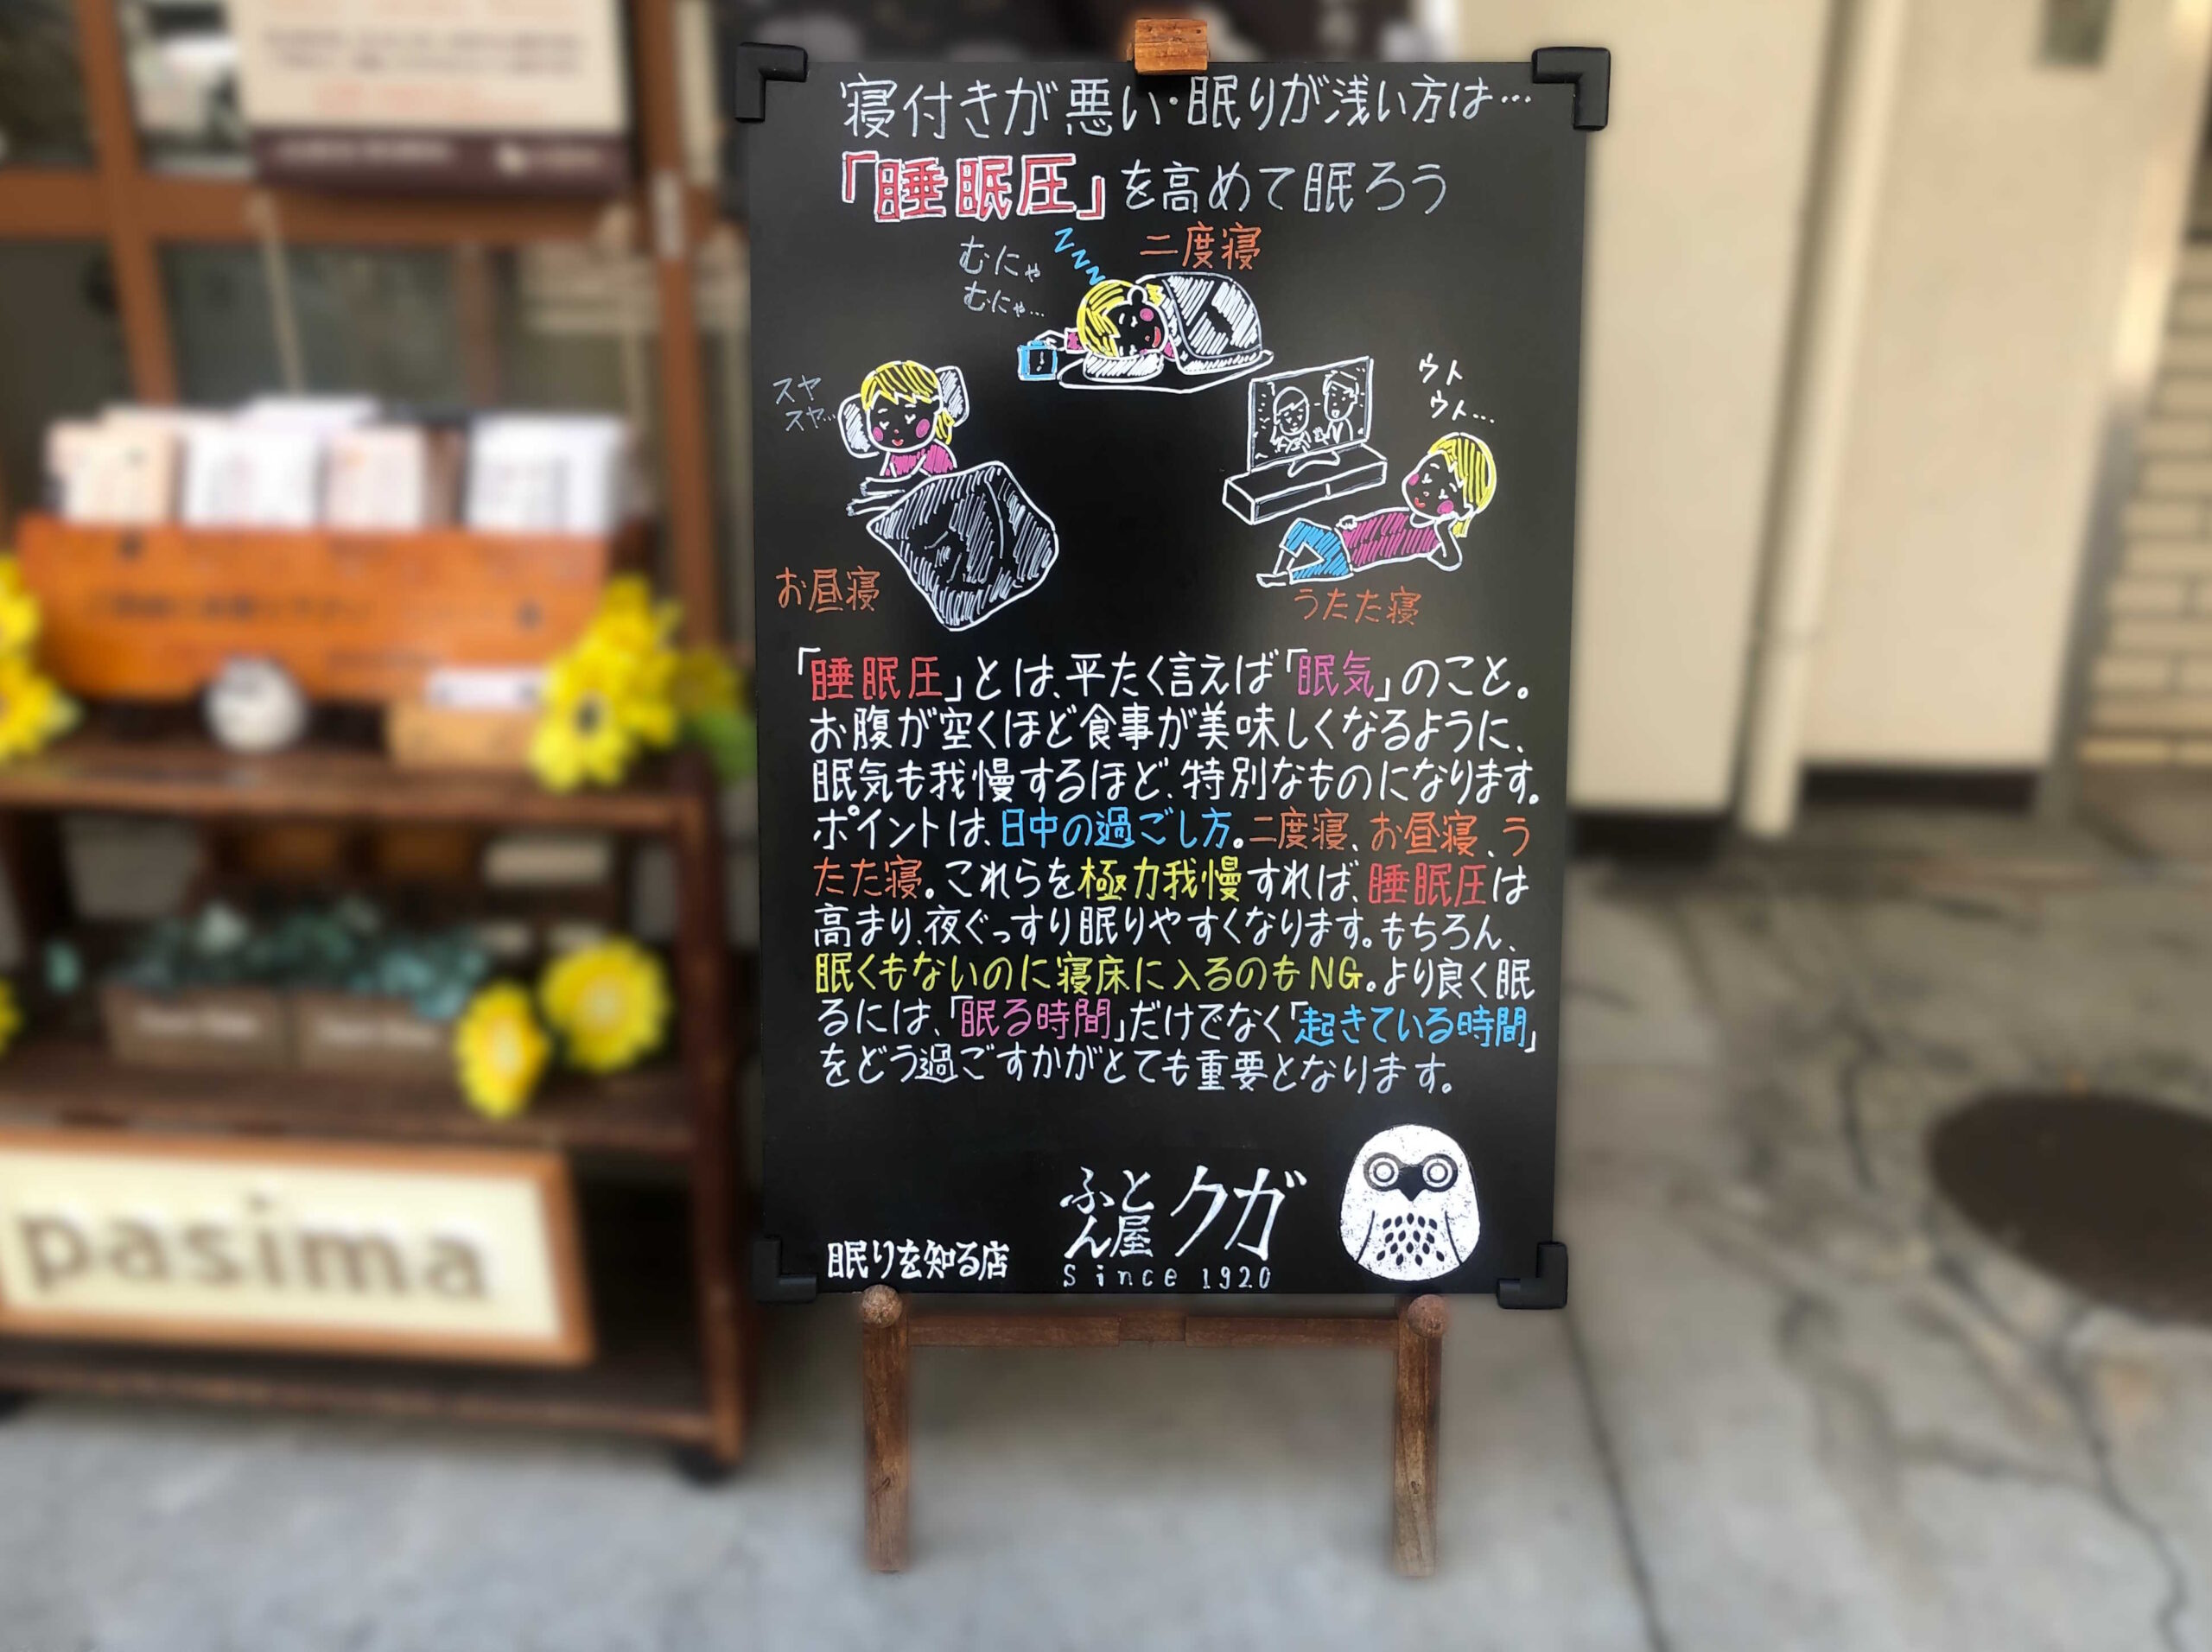 寝付きが悪い・眠りが浅い方は…
「睡眠圧」を高めて眠ろう
二度寝
むにゃ
むにゃ…
ZZZZ
スヤ
スヤ…
ウト
ウト…
お昼寝
うたた寝
「睡眠圧」とは、平たく言えば「眠気」のこと。
お腹が空くほど食事が美味しくなるように、
眠気も我慢するほど、特別なものになります。
ポイントは、日中の過ごし方。二度寝、お昼寝、う
たた寝。これらを極力我慢すれば、睡眠圧は
高まり、夜ぐっすり眠りやすくなります。もちろん、
眠くもないのに寝床に入るのもNG。より良く眠
るには、「眠る時間」だけでなく「起きている時間」
をどう過ごすかがとても重要となります。
眠りを知る店
ふとん屋クガ
Since 1920
pasima